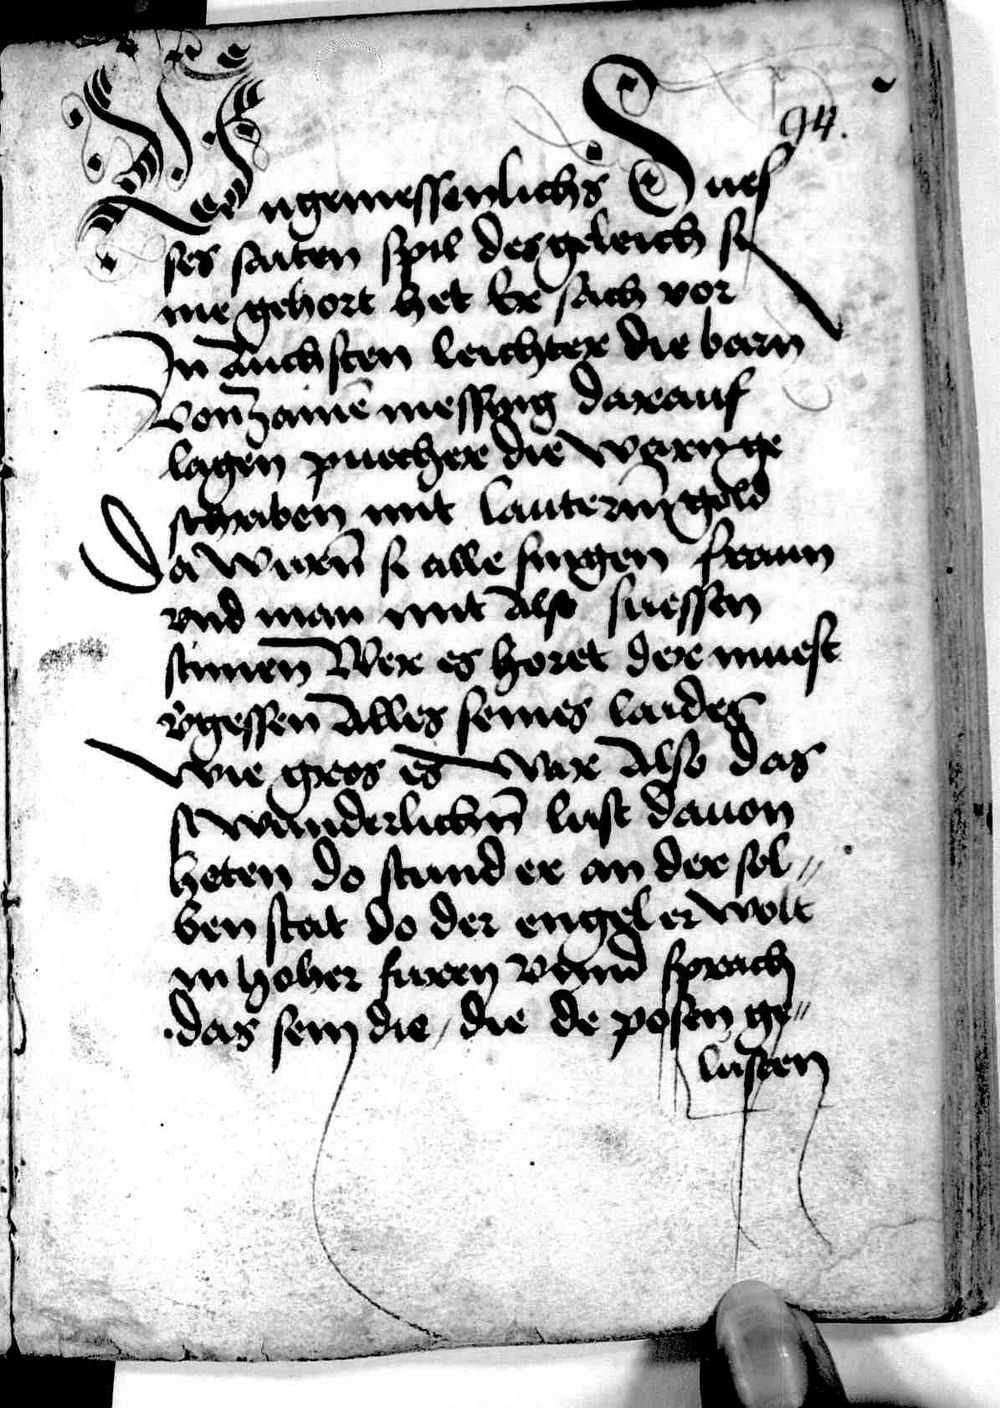 94.
ungemessenlichs Sues
ses saiten spil des geleich si
nie gehort het Er sach vor
In Auch sten leichter die barn
von zamē messing darauf
lagen puecher die warn ge
schriben mit lauterm gold
Da warn̄ si alle singen frawn
vnd man mit Also suessen
stimen Wer es horet der muest
v̄gessen Alles seines laides
wie gros es war Also das
si wunderlichn̄ lust dauon
heten do stund er an der sel〃
ben stat do der engel er wolt
in hoher furen vnnd sprach
das sein die / die de posen ge〃
lusten